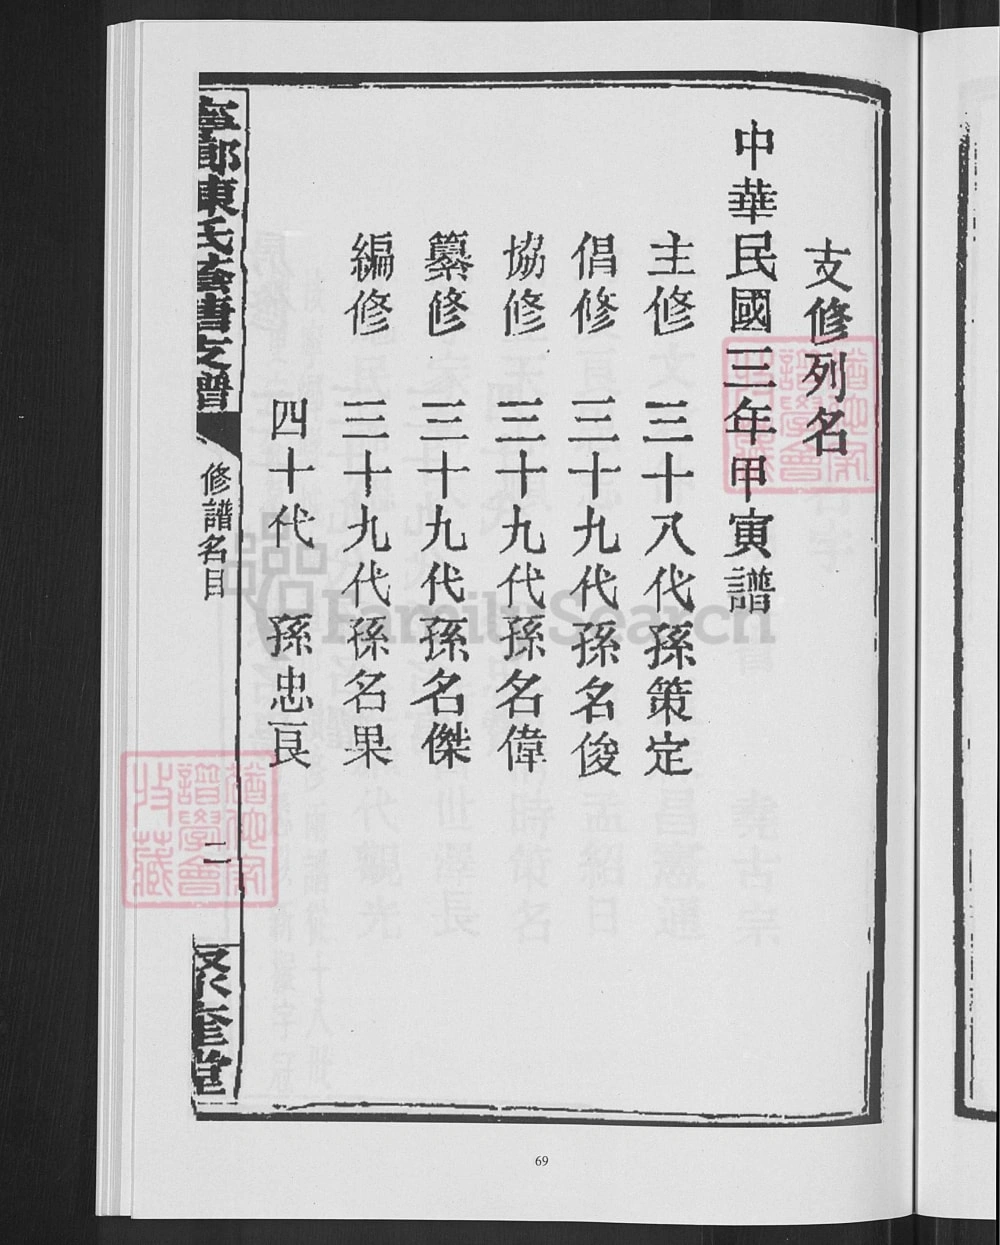 支修列名
中華民國三年甲寅譜
主修 三十八代孫策定
倡修 三十九代孫名俊
協修 三十九代孫名偉
纂修 三十九代孫名傑
編修 三十九代孫名果
四十代 孫忠良
修譜名目
二
聚奎堂
FamilySearch
69